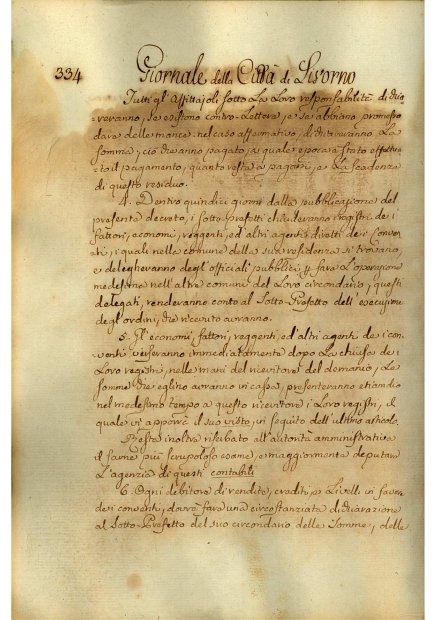 334 Giornale della Città di Livorno
Tutti gl'Affittajoli sotto La Loro responsabilità dichia-
-reranno, se esistono contro-Lettere, e se abbiano promesso
dare delle mance: nel caso affermativo, dichiareranno La
somma, ciò che anno pagato, a quale epoca è stato effettua-
-to il pagamento, quanto resta a pagarsi, e La scadenza
di questo residuo.
4. Dentro quindici giorni dalla pubblicazione del
presente decreto, i sotto-Prefetti chiuderanno i registri dei
fattori, economi, reggenti, ed altri agenti diretti dei Conven-
ti, i quali nelle comune della sua residenza si trovano,
e delegheranno degl'officiali pubblici p fare L'operazione
medesima nell'altre comuni del Loro circondario, questi
delegati, renderanno conto al Sotto-Prefetto dell'esecuzione
degl'ordini, che ricevuto avranno.
5. Gl'economi, fattori, reggenti, ed'altri agenti dei con-
venti verseranno immediatamente dopo La chiusa dei
Loro registri, nelle mani del ricevitore del demanio, Le
somme che eglino avranno in cassa, presenteranno etiandio
nel medesimo tempo a questo ricevitore i Loro registri, il
quale vi apporrà il suo visto, in seguito dell'ultimo articolo.
Resta inoltre riserbato all'autorità amministrativa
il farne più scrupoloso esame, e maggiormente depurare
L'agenzia di questi contabili
6. Ogni debitore di rendite, crediti, e Livelli in favore
dei conventi, dovrà fare una circostanziata dichiarazione
al Sotto-Prefetto del suo circondario delle somme, delle